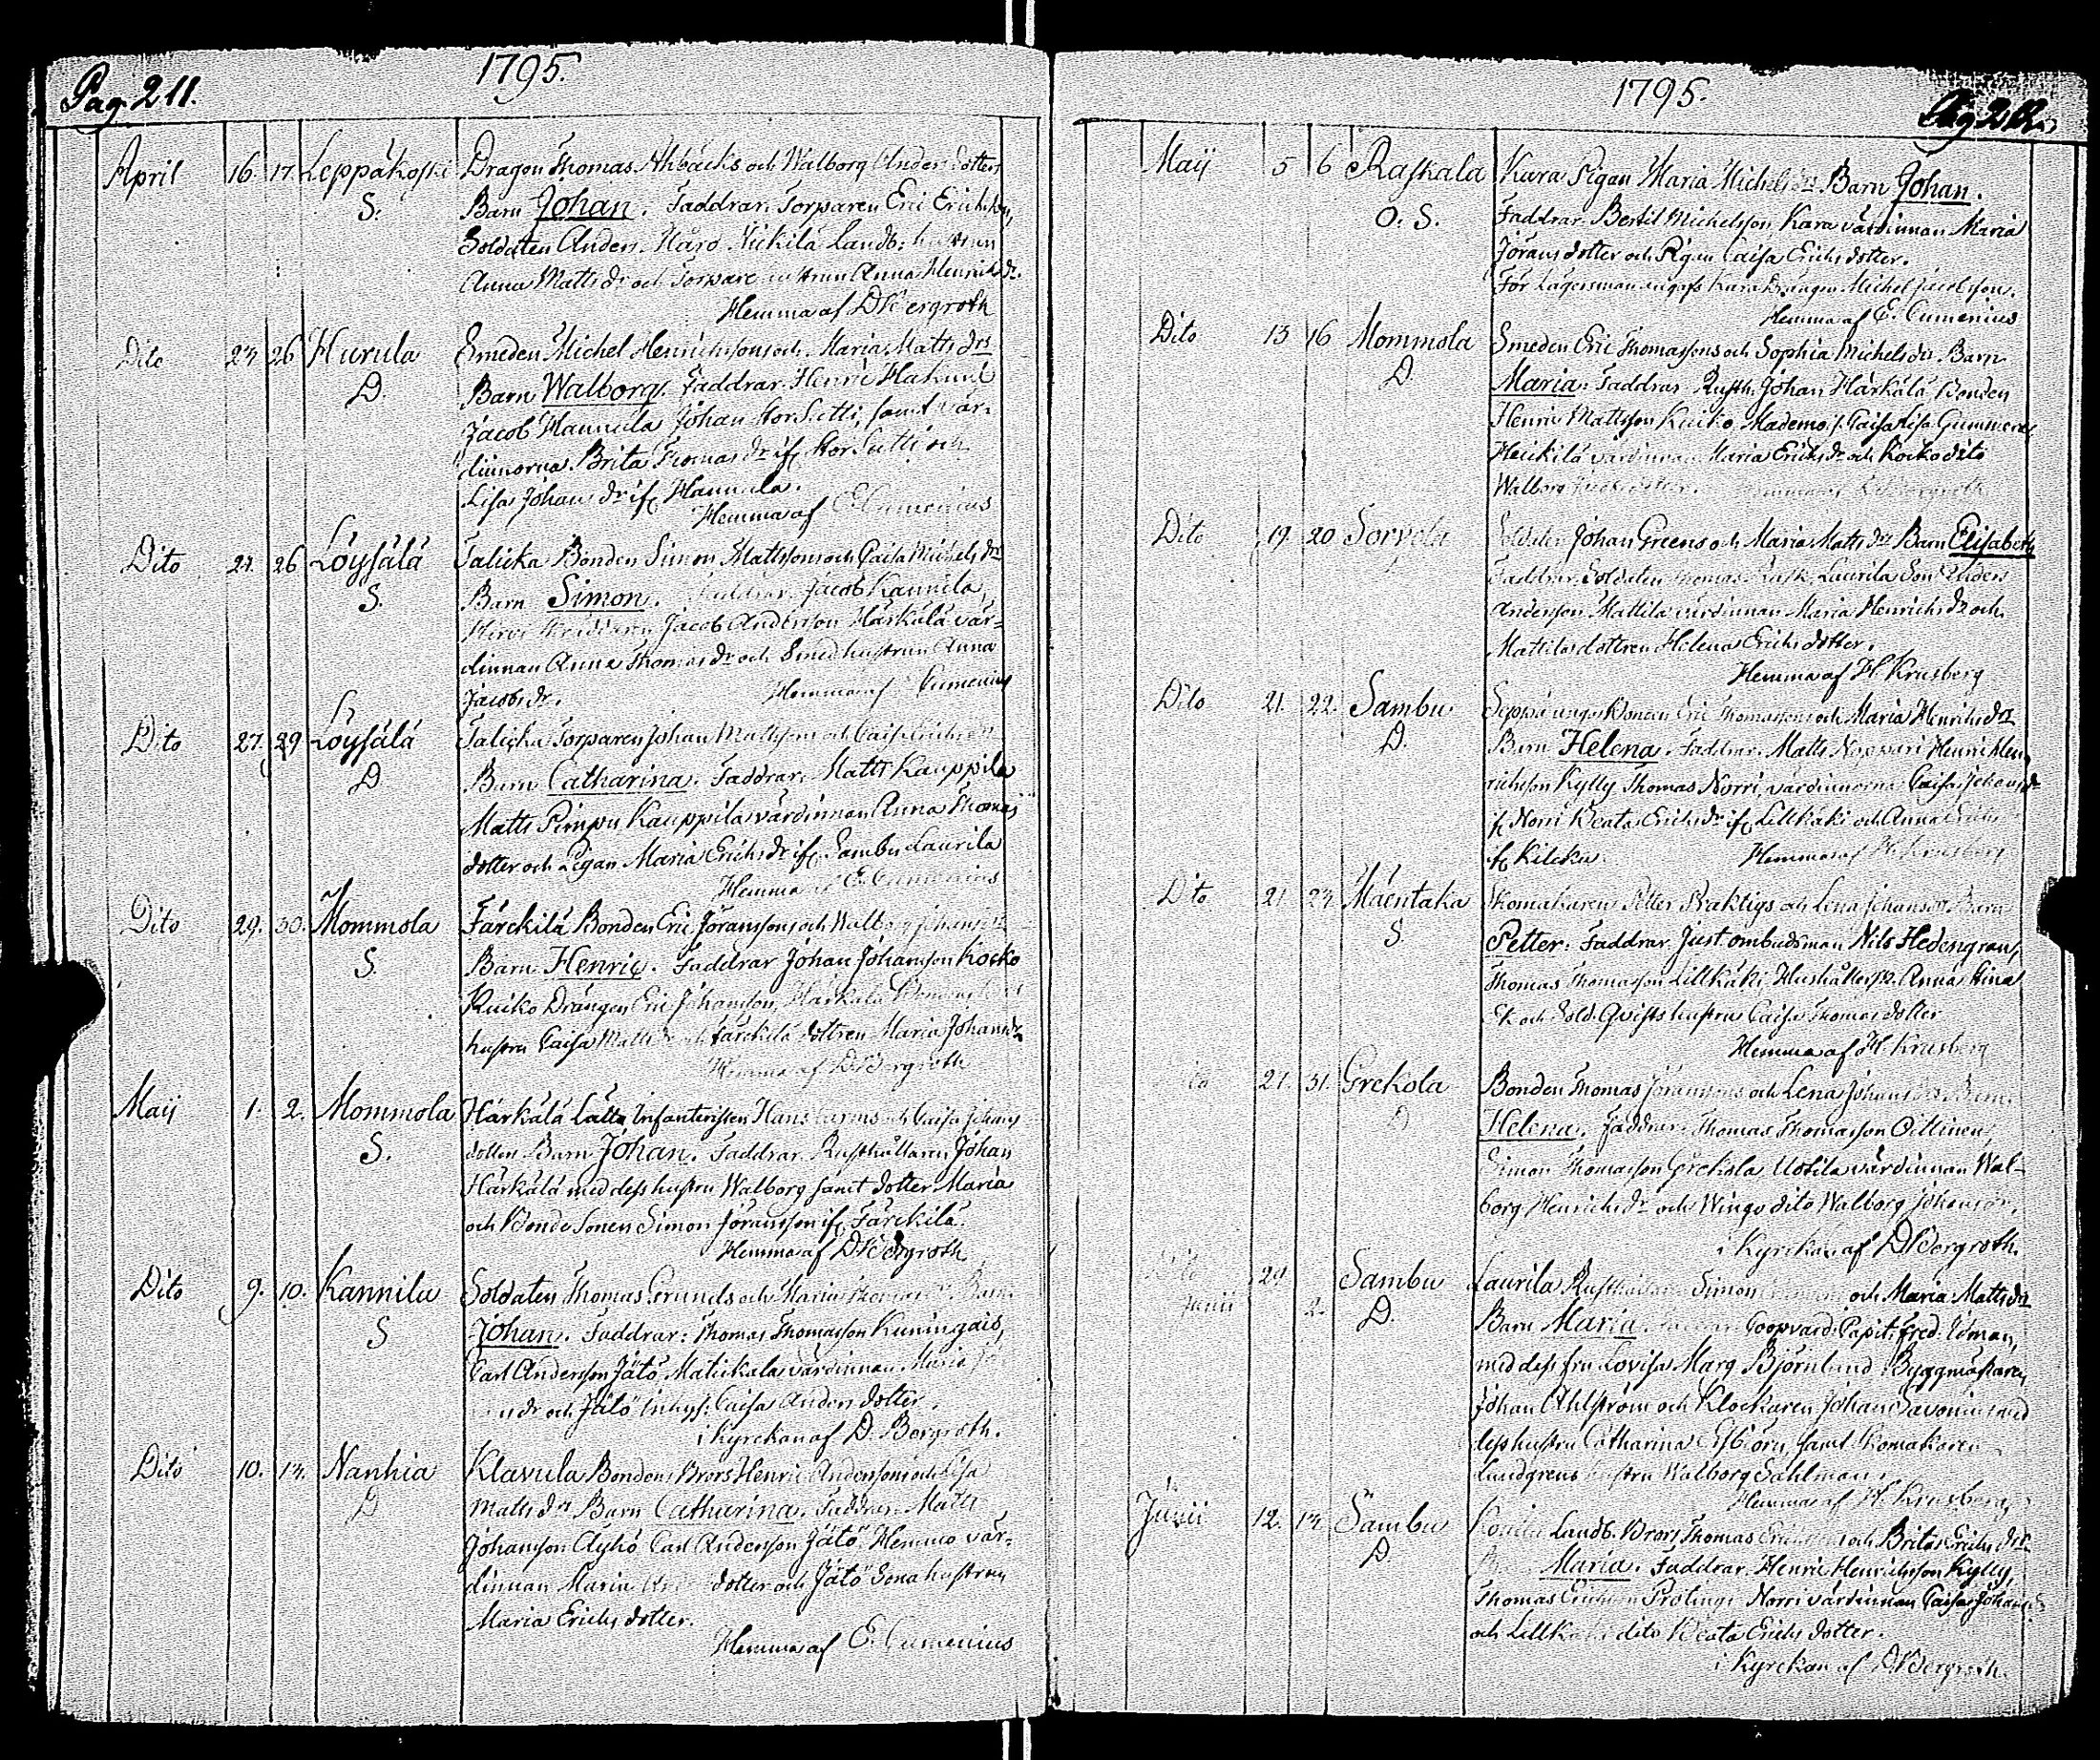 Pag. 211.
1795.
April 16. 17. Leppäkoski Dragon Thomas Ahbäcks och Walborg Anders dotters
S. Barn Johan. Faddrar. Torparen Eric Erichsson,
Soldaten Anders Hård Nickilä Landb: hustrun
Anna Matts dr och Torpare hustrun Anna Henrichs dr.
Hemma af D Bergroth
Dito 24 26 Hurula Smeden Michel Henrichssons och Maria Matts drs
D. Barn Walborg. Faddrar. Henric
Jacob Hannula Johan Stor Sutti, samt vär-
dinnorna Brita Thomas dr if. Stor Sutti och
Lisa Johans dr if. Hannula.
Hemma af E Cumenius
Dito 24. 26 Löysälä Talicka Bonden Simon Mattssons och Caisa Michels drs
S. Barn Simon. Faddrar. Jacob Kannila,
Jacob Andersson Härkälä vär-
dinnan Anna Thomas dr och Smed hustrun Anna
Jacobs dr. Hemma af Cumenius
Dito 27. 29 Löysälä Talicka Torparen Johan Mattssons och Caisa
D Barn Catharina. Faddrar. Matts Kauppila
Matts Pimpu Kauppila värdinnan Anna Thomas
dotter och Pigan Maria Erichs dr if. Sambu Laurila
Hemma af E. Cumenius
Dito 29. 30. Mommola Färckilä Bonden Eric Jöranssons och Walborg Johans
S. Barn Henric. Faddrar Johan Johansson Kocko
Kuiko Drängen Eric Johansson, Härkälä
hustru Caisa Matts dr och Färckilä dottren Maria Johans dr
Hemma af D Bergroth
Maij 1. 2. Mommola Härkälä Lätta Infanteristen Hans och Caisa Johans
S. dotters Barn Johan. Faddrar. Rusthållaren Johan
Härkälä med dess hustru Walborg samt dotter Maria
och Bonde Sonen Simon Jöransson if. Färckilä.
Hemma af D Bergroth
Dito 9. 10. Kannila Soldaten Thomas Grunds och Maria Thomas Barn
S Johan. Faddrar: Thomas Thomasson Kuningais,
Carl Andersson Jätö Matickala värdinnan Maria
dr och Jätö Inhys: Caisa Anders dotter.
i Kyrckan af D. Bergroth.
Dito 10. 14. Nanhia Klavula Bondens Brors Henric Anderssons och Lisa
D Matts drs Barn Catharina. Faddrar. Matts
Johansson Äyhö Carl Andersson Jätö Hemmo vär-
dinnan Maria dotter och Jätö Sona hustrun
Maria Erichs dotter.
Hemma af E. Cumenius
1795.
Pag 212.
Maij 5 6 Raskala Kara Pigan Maria Michels drs Barn Johan.
O. S. Faddrar. Bertil Michelsson, Kara värdinnan Maria
Jörans dotter och Pigan Caisa Erichs dotter.
För Lägersman angafs Kara Drängen Michel Jacobsson.
Hemma af E. Cumenius
Dito 13 16 Mommola Smeden Eric Thomassons och Sophia Michels drs Barn
D. Maria. Faddrar Rusth: Johan Härkälä Bonden
Henric Mattsson Kuiko, Mademois. Caisa Lisa Gummerus
Heickilä värdinnan Maria Erichs dr och Kocko dito
Walborg dotter. Hemma af
Dito 19. 20 Sorvola Soldaten Johan Greens och Maria Matts drs Barn Elisabeth
Faddrar. Soldaten Thomas Rask, Laurila Son Anders
Andersson Mattila värdinnan Maria Henrichs dr och
Mattila dottren Helena Erichs dotter.
Hemma af H. Krusberg
Dito 21. 22. Sambu Seppä unga Bonden Eric Thomassons och Maria Henrichs drs
D. Barn Helena. Faddrar. Matts Noppari Henric Hen-
richsson Kylly Thomas Norri, värdinnorna Caisa Johans dr
if. Norri Beata Erichs dr if. Lillkäki och Anna Erichs
if. Kilcku. Hemma af H. Krusberg
Dito 21 24 Mäentaka Skomakaren Petter Praktigs och Lena Johans drs Barn
S. Petter. Faddrar. Just. ombudsman Nils Hedengran,
Thomas Thomasson Lillkäki, Hushållersk. Anna Stina
Ek och Sold. Qvists hustru Caisa Thomas dotter
Hemma af H. Krusberg
21. 31. Grekola Bonden Thomas Jöranssons och Lena Johans Barn
D Helena. Faddrar. Thomas Thomasson Oillinen,
Simon Thomasson Grekola Uotila värdinnan Wal-
borg Henrichs dr och Wingo dito Walborg Johans dr.
i Kyrckan af D Bergroth.
Dito 29 Sambu Laurila Rusthållaren Simon och Maria Matts drs
Junii 2. D. Barn Maria. Coopvardi Capit: Fred: Uman,
med dess fru Lovisa Marg Björnlund Byggmästaren
Johan Ahlström och Klockaren Johan Savonius med
dess hustru Catharina Esbiörn, samt Skomakaren
Lundgrens hustru Walborg Sahlman.
Hemma af H. Krusberg
Junii 12. 14. Sambu Landb. Brors Thomas och Brita Erichs drs
D. Maria. Faddrar. Henric Henrichsson Kylly,
Thomas Prolingi Norri värdinnan Caisa Johans
och Lillkäki dito Beata Erichs dotter.
i Kyrckan af D Bergroth.